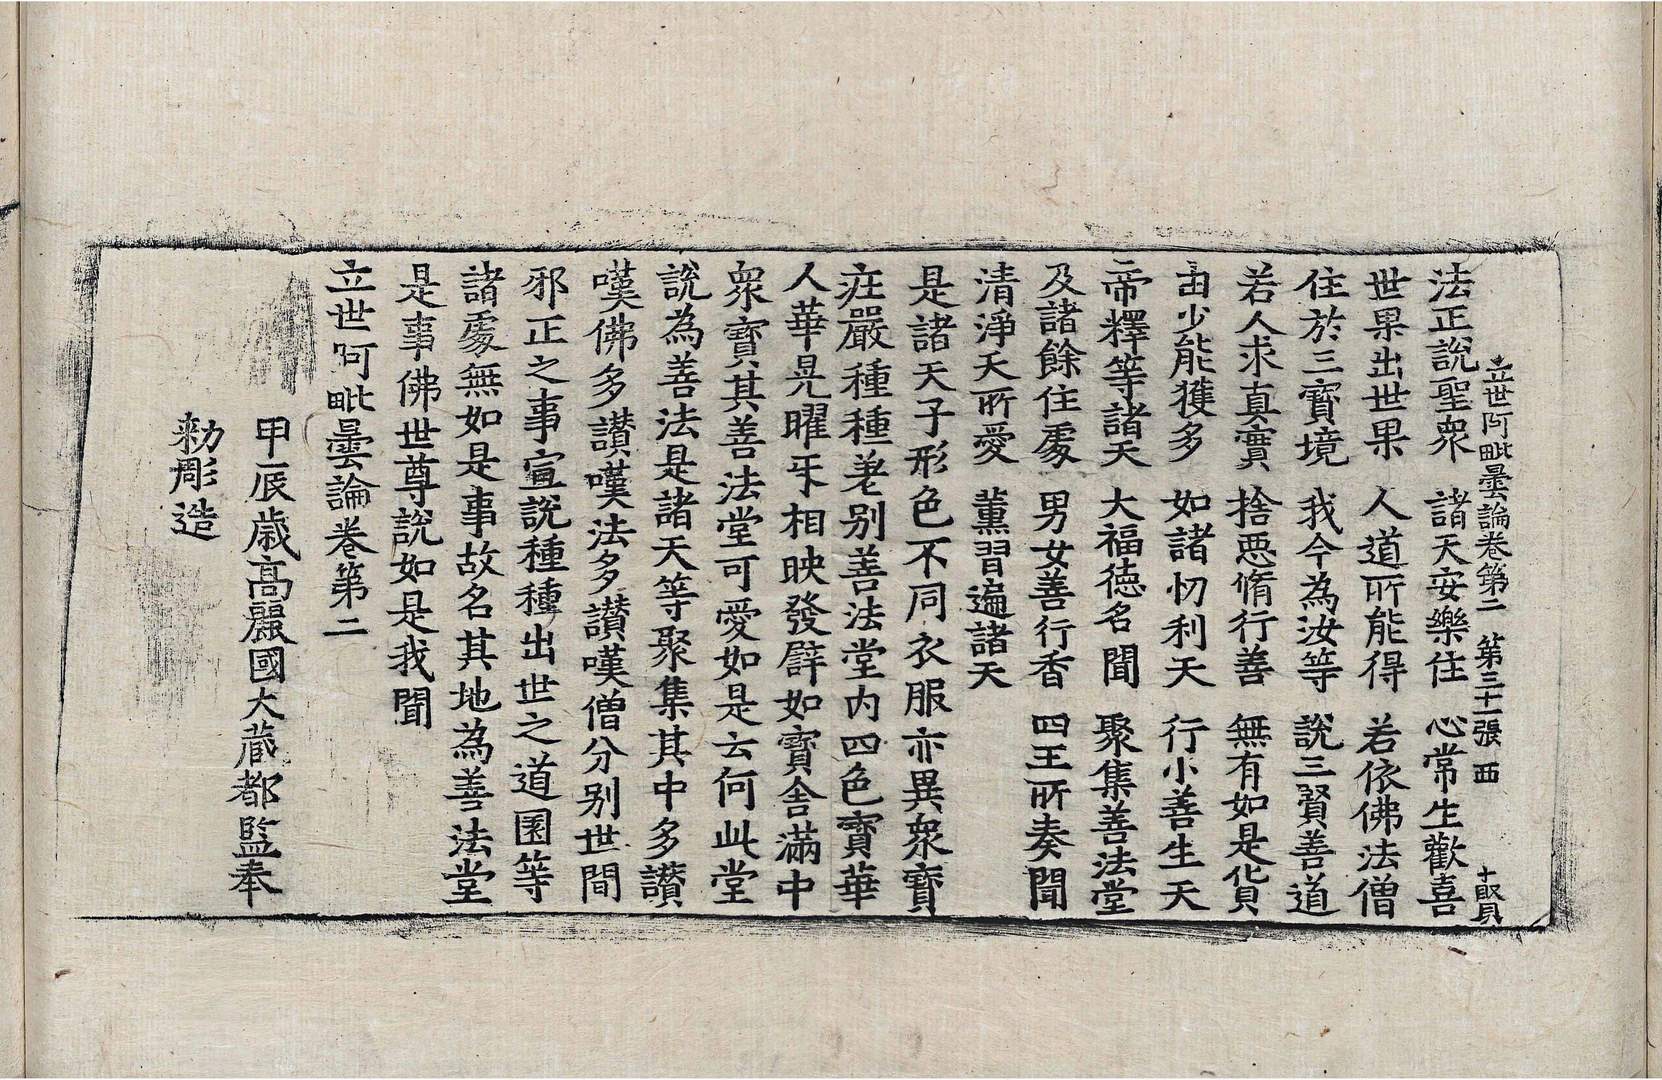 立世阿毗曇論卷第二　第三十一張　西　十賢
法正說聖衆　諸天安樂住　心常生歡喜
世果出世果　人道所能得　若依佛法僧
住於三寶境　我今為汝等　說三賢善道
若人求真實　捨惡脩行善　無有如是貨
由少能獲多　如諸忉利天　行小善生天
帝釋等諸天　大福德名聞　聚集善法堂
及諸餘住處　男女善行香　四王所奏聞
清淨天所愛　薰習遍諸天
是諸天子形色不同衣服亦異衆寶
莊嚴種種差別善法堂內四色寶華
人華晃曜牙相映發譬如寶舍滿中
衆寶其善法堂可愛如是云何此堂
說為善法是諸天等聚集其中多讃
嘆佛多讃嘆法多讃嘆僧分别世間
邪正之事宣說種種出世之道園等
諸處無如是事故名其地為善法堂
是事佛世尊說如是我聞
立世阿毗曇論卷第二
甲辰歲高麗國大藏都監奉
勑彫造